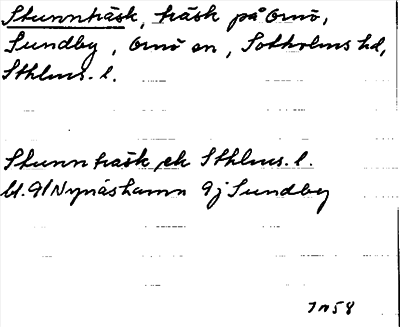 Stunnträsk, träsk på Ornö,
Sundby, Ornö sn, Sotholms hd,
Sthlms. l.
Stunnträsk ek Sthlms. l.
bl. 91 Nynäshamn 9j Sundby